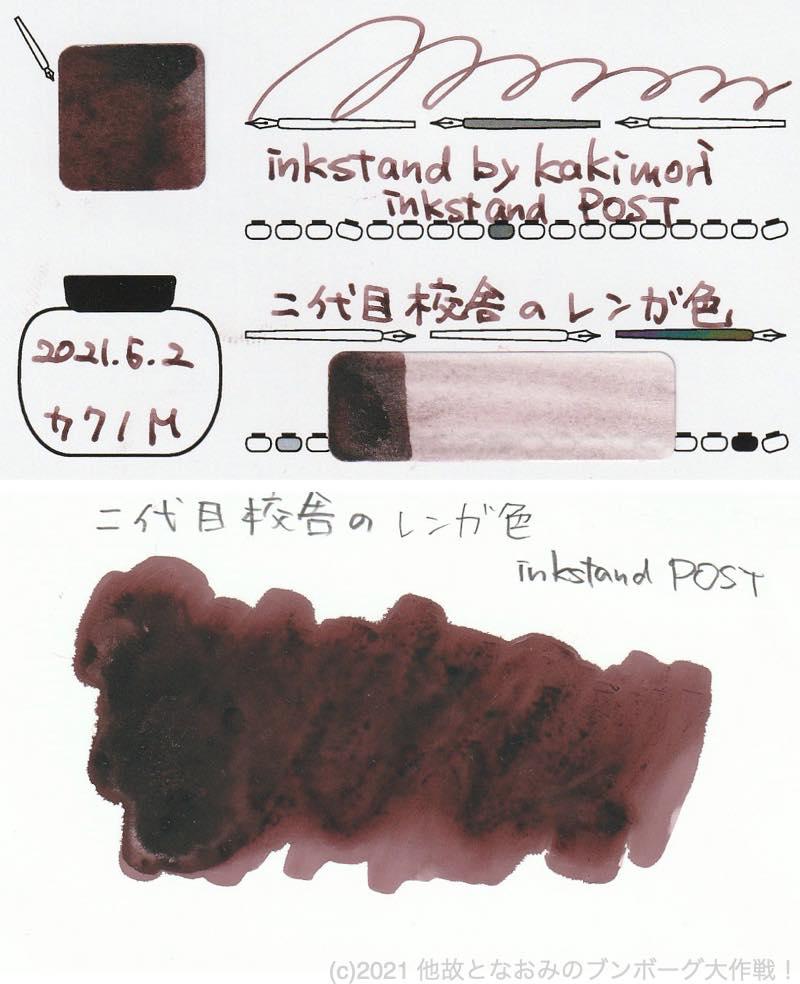 inkstand by kakimori
inkstand POST
二代目校舎のレンガ色
2021.5.2
カクノM
二代目校舎のレンガ色
inkstand POST
(c)2021 他故となおみのブンボーグ大作戦！